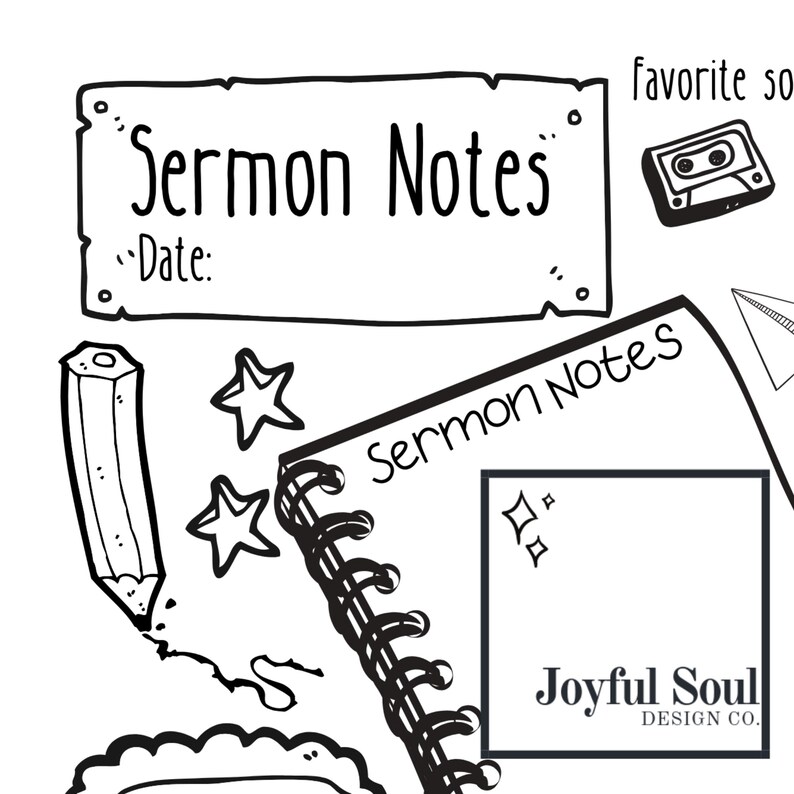 favorite so
Sermon Notes
Date:
Sermon Notes
Joyful Soul
DESIGN CO.